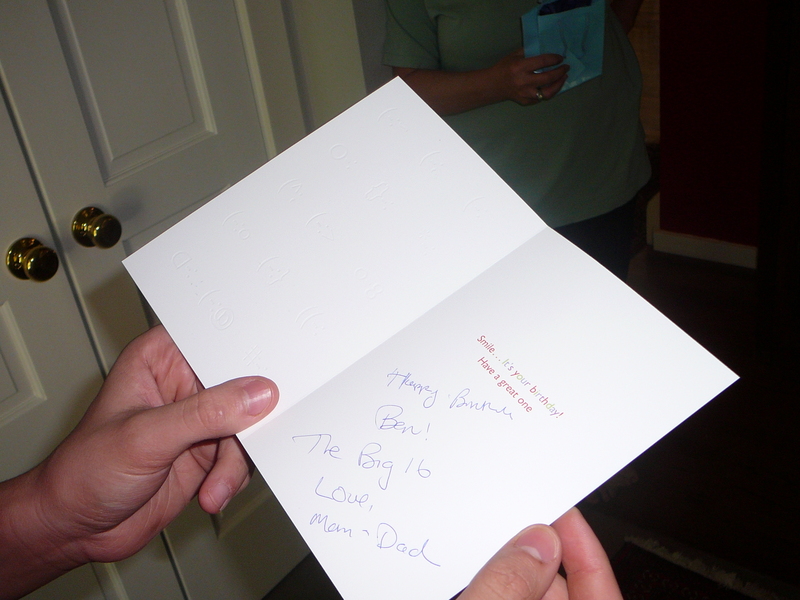 Smile...it's your birthday!
Have a great one
Happy Birthday
Ben!
The Big 16
Love,
Mom - Dad